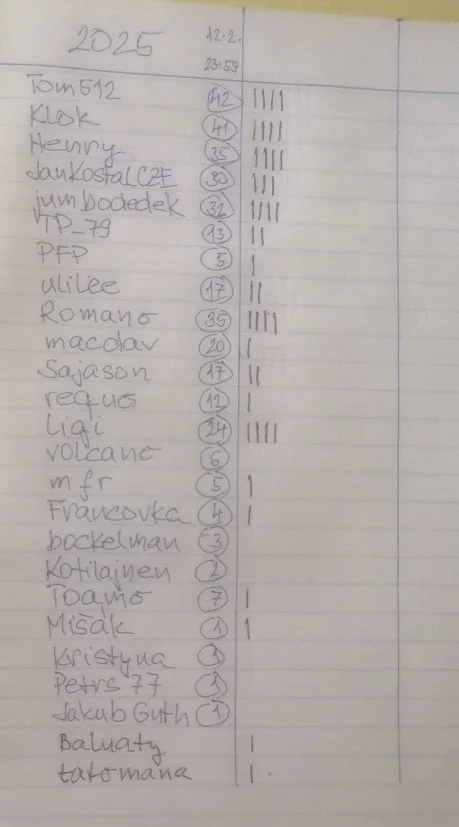 2025 12.2.
23:59
Tom512 42 ||||
Klok 41 ||||
Henry 35 ||||
JanKostalCZE 30 |||
jumbodedek 32 ||||
TP_79 13 ||
PFP 5 |
ulilee 17 ||
Romano 35 ||||
macdav 20 |
Sajason 17 ||
requo 12 |
Ligi 24 ||||
volcano 6
mfr 5 |
Francovka 4 |
bockelman 3
Kotilajnen 2
Toamo 7 |
Mišák 1 |
Kristyna 1
Petrs77 1
Jakub Guth 1
Baluaty |
tatomana |